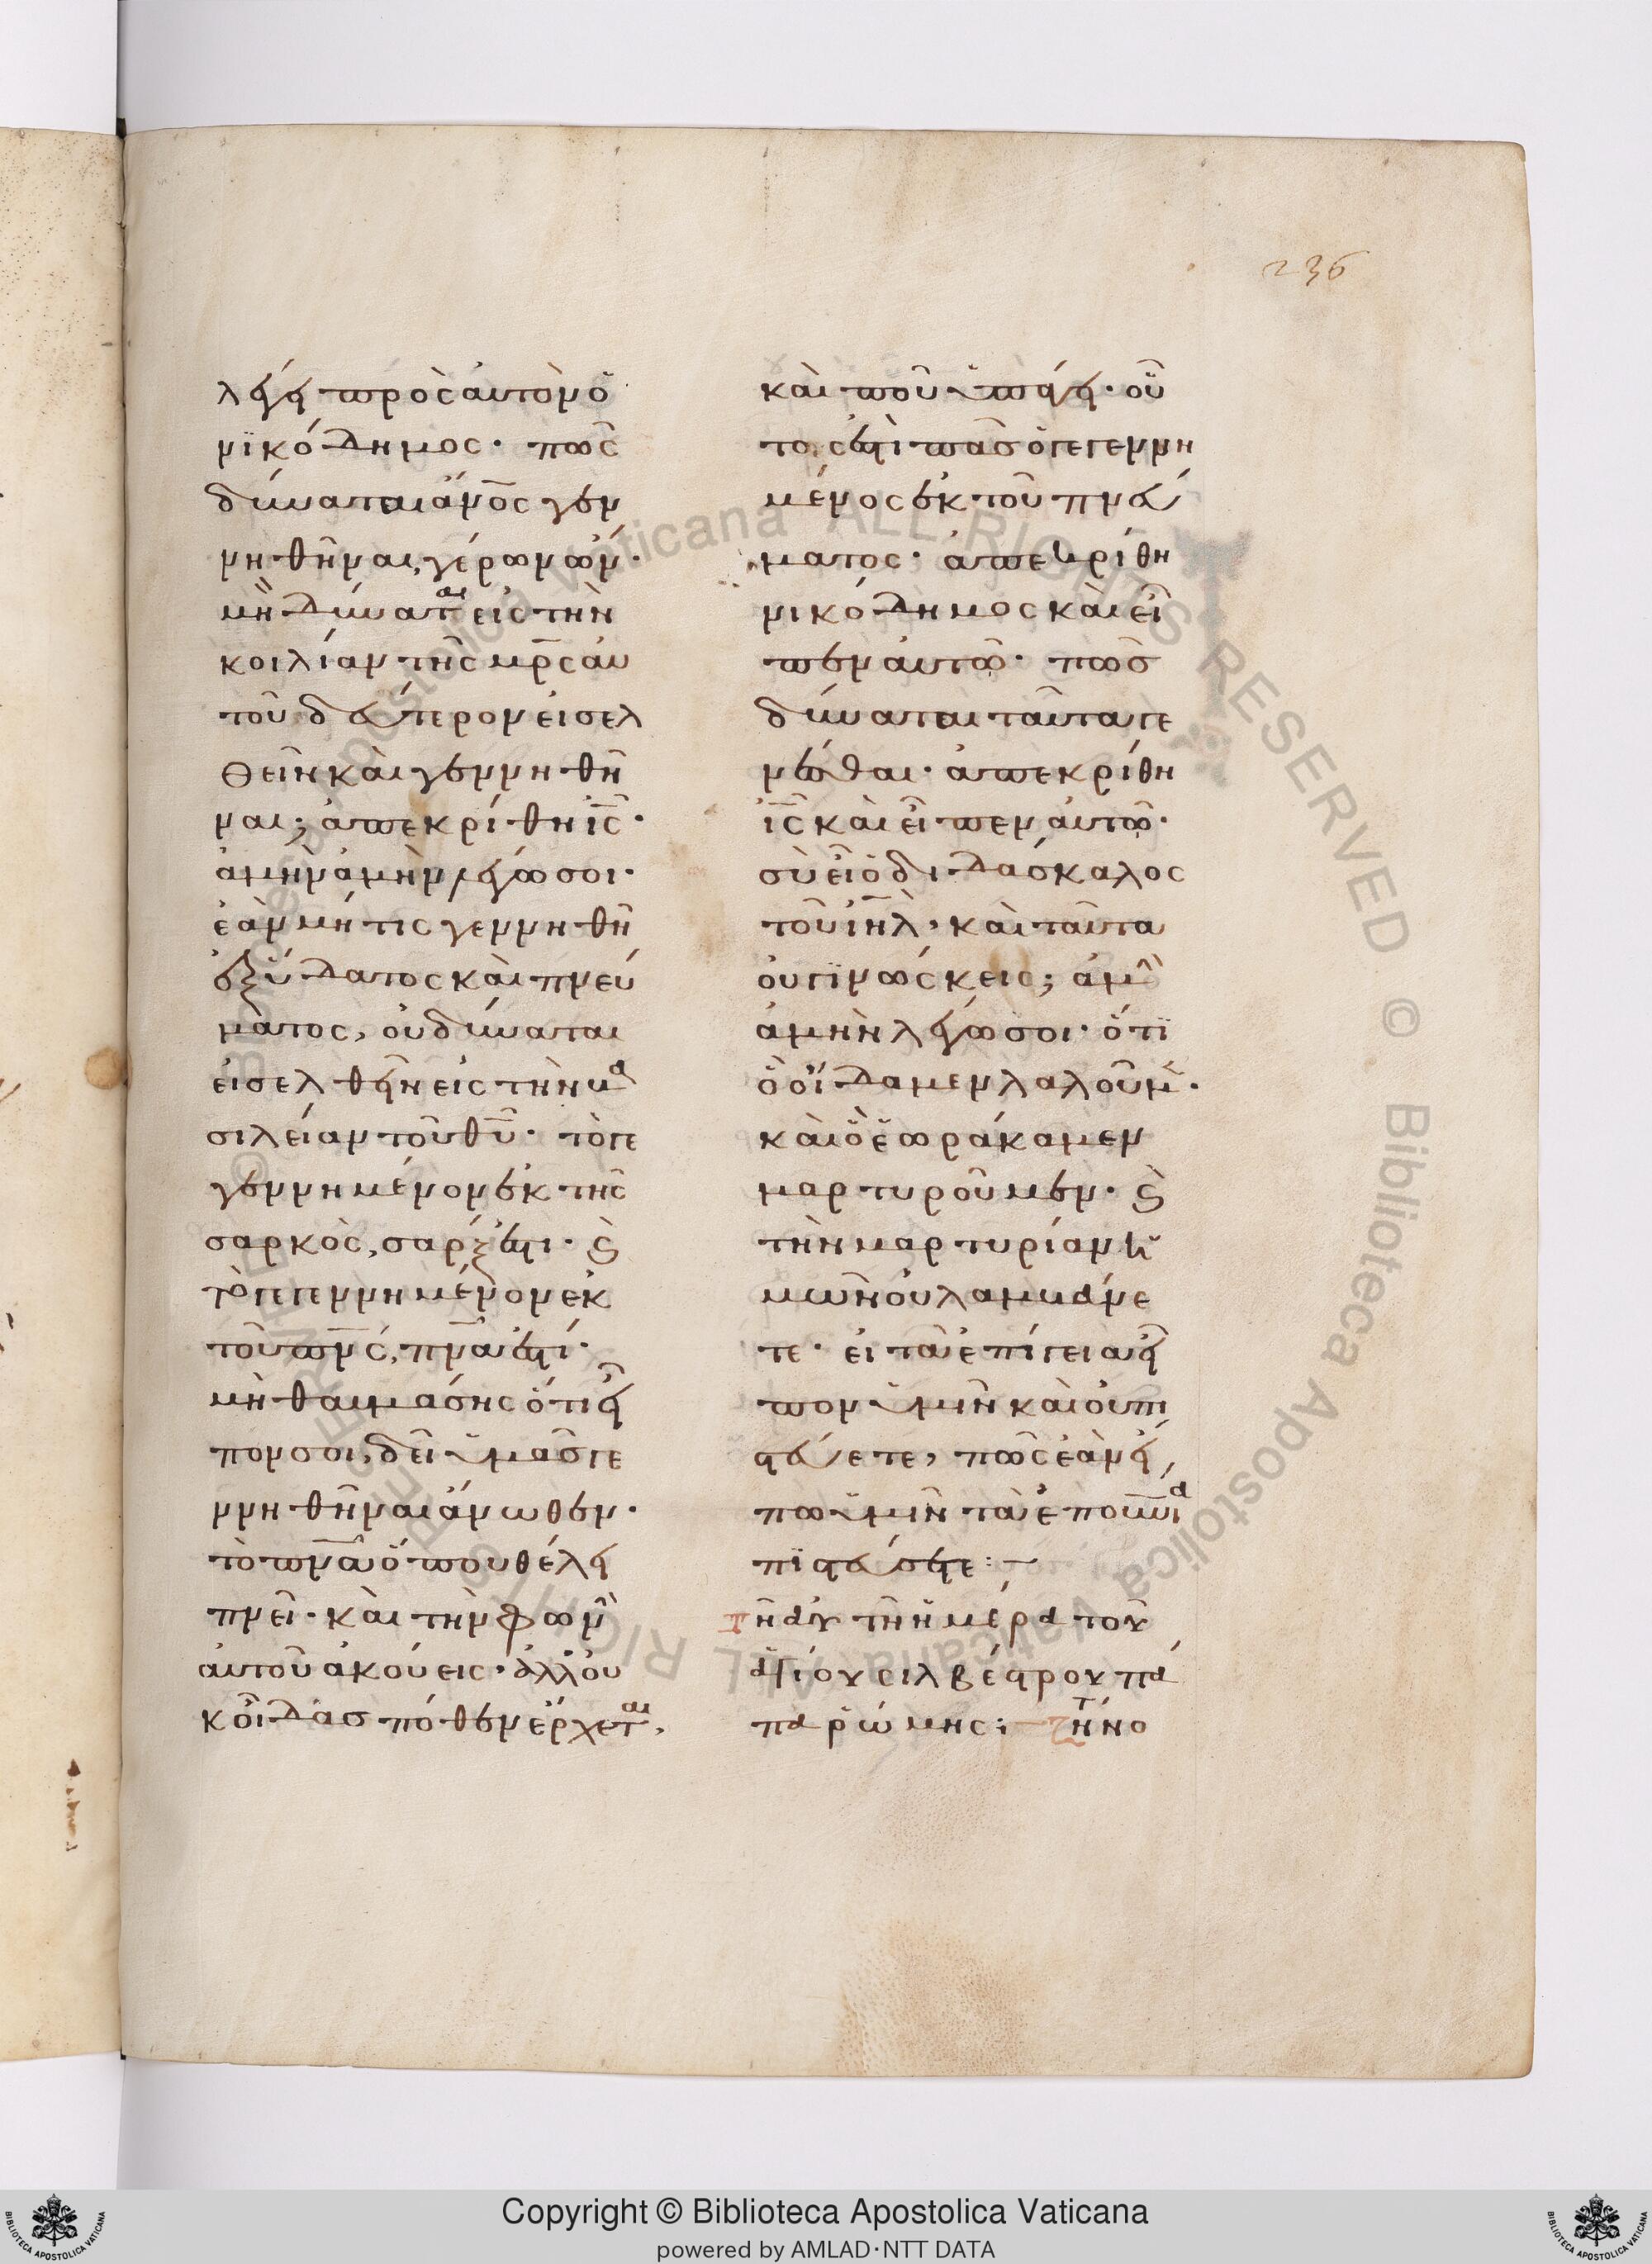 236
λέγει πρὸς αὐτὸν ὁ
νϊκόδημος· πῶς
δύναται ἄν̅ο̅ς γεν
νηθῆναι, γέρων ὤν·
μὴ δύνατ̅αι εἰς τὴν
κοιλίαν τῆς μ̅ρ̅ς αὐ
τοῦ δεύτερον εἰσελ
θεῖν καὶ γεννηθῆ
ναι; ἀπεκρίθη ι̅ς̅·
ἀμὴν ἀμὴν λέγω σοι·
ἐὰν μή τις γεννηθῆ
ἐξ ὕδατος καὶ πνεύ
ματος, οὐ δύναται
εἰσελθεῖν εἰς τὴν βα
σιλείαν τοῦ θ̅υ̅· τὸ γε
γεννημένον ἐκ τῆς
σαρκὸς, σάρξ ἐστι· ϗ
τὸ γεγεννημένον ἐκ
τοῦ π̅ν̅ς, π̅ν̅α ἐστί·
μὴ θαυμάσης ὅτι εἶ
πόν σοι, δεῖ ὑμᾶς γε
ννηθῆναι ἄνωθεν·
τὸ π̅ν̅α ὅπου θέλει
πνεῖ· καὶ τὴν φωνὴ
αὐτοῦ ἀκούεις· ἀλλ' οὐ
κ οἶδας πόθεν ἔρχετ̅αι,
καὶ ποῦ ὑπάγει· οὕ
τος ἐστὶ πᾶς ὁ γεγεννη
μένος ἐκ τοῦ πνεύ
ματος· ἀπεκρίθη
νικόδημος καὶ εἶ
πεν αὐτῷ· πῶς
δύναται ταῦτα γε
νέσθαι· ἀπεκρίθη
ι̅ς̅ καὶ εἶπεν αὐτῷ·
σὺ εἶ ὁ διδάσκαλος
τοῦ ι̅η̅λ̅, καὶ ταῦτα
οὐ γϊνώσκεις; ἀμὴ
ἀμὴν λέγω σοι· ὅτϊ
ὃ οἴδαμεν λαλοῦμε·
καὶ ὃ ἑωράκαμεν
μαρτυροῦμεν· ϗ
τὴν μαρτυρίαν ἡ
μῶν οὐ λαμβάνε
τε· εἰ τὰ ἐπίγεια εἶ
πον ὑμῖν καὶ οὐ πι
στεύετε, πῶς ἐὰν εἴ
πω ὑμῖν τὰ ἐπουνια
πϊστεύσετε:
τῆ αὐτῆ ἡμέρα τοῦ
ἁγίου σιλβέστρου πά
πα ῥώμης: ζήτ ἡνο